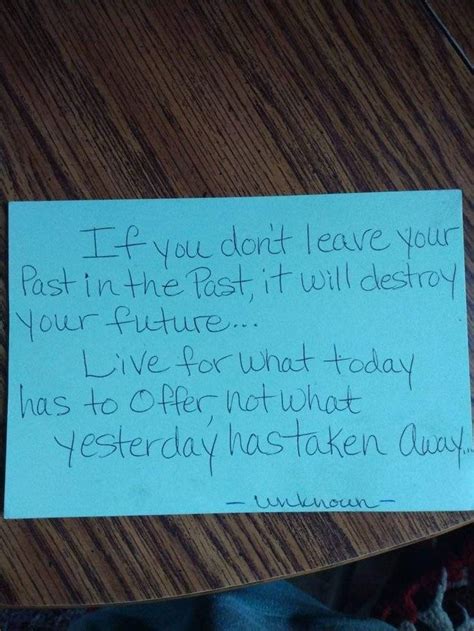 If you don't leave your
Past in the Past, it will destroy
your future...
Live for what today
has to Offer, not what
yesterday has taken away...
- unknown -